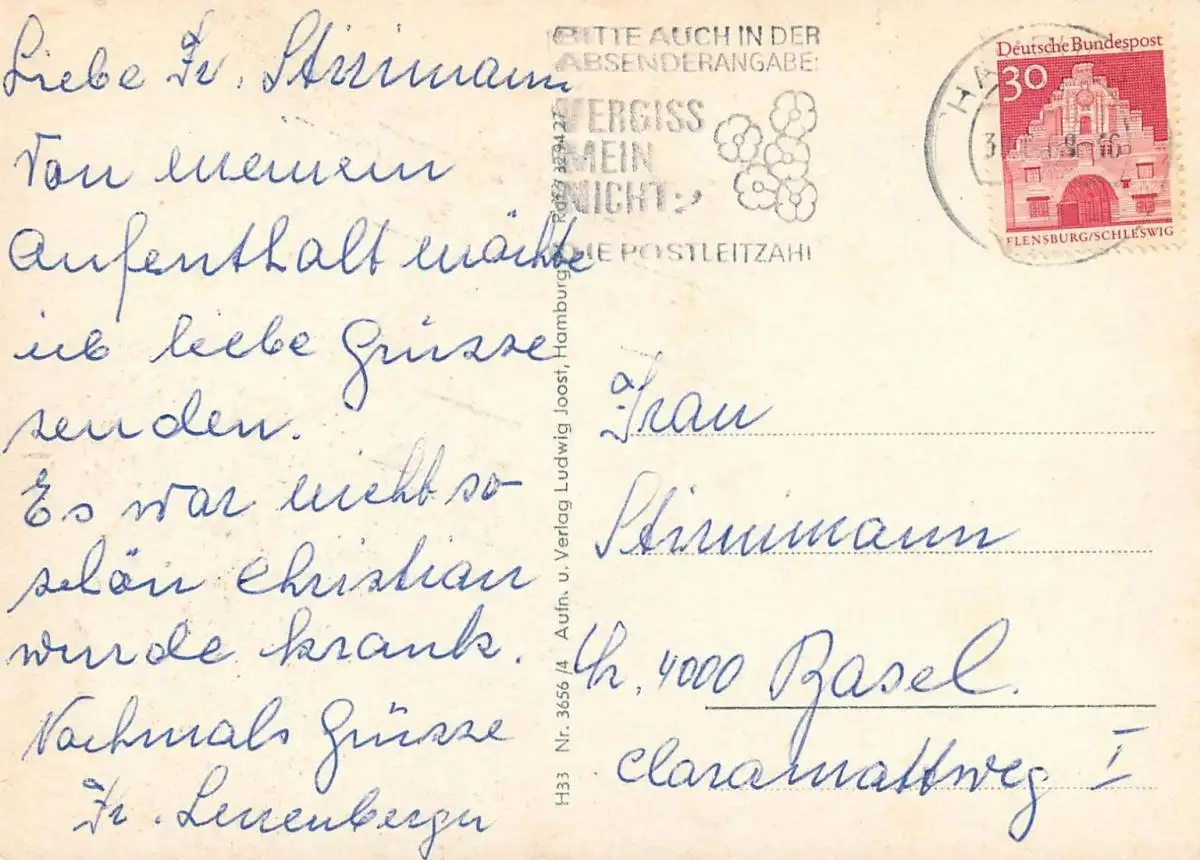 Liebe Fr. Stirnimann
Von meinem
Aufenthalt möchte
ich liebe Grüsse
senden.
Es war nicht so
schön Christian
wurde krank.
Nochmals Grüsse
Fr. Leuenberger
BITTE AUCH IN DER
ABSENDERANGABE:
VERGISS
MEIN
NICHT
DIE POSTLEITZAHL
Deutsche Bundespost
30
FLENSBURG/SCHLESWIG
H33 Nr. 3656/4 Aufn. u. Verlag Ludwig Joost, Hamburg
Frau
Stirnimann
Ch. 4000 Basel.
Claramattweg I